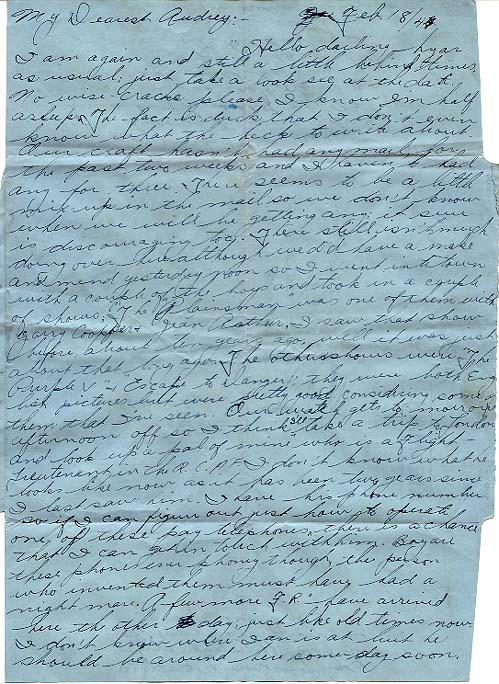 My Dearest Audrey:- Feb. 18/44
"Hello, darling" hyar
I am again and still a little behind times
as usual; just take a look see at the date.
No wise cracks please, I know I'm half
asleep. The fact is duck that I don't even
know what the heck to write about
Our craft hasn't had any mail for
the past two weeks and I haven't had
any for three. There seems to be a little
mix up in the mail so we don't know
when we will be getting any; it sure
is discouraging too. There still isn't much
doing over here although we did have a make
and mend yesterday noon so I went into town
with a couple of the boys and took in a couple
of shows; The "Plainsman" was one of them with
Garry Cooper & Jean Arthur. I saw that show
before about ten years ago, well it was just
about that long ago. The other shows were "The
Purple V" & "Escape to Danger"; they were both
pictures but were pretty good considering some of
them that I've seen. Our watch gets to-morrow
afternoon off so I think I'll take a trip to London
and look up a pal of mine who is a Flight-
Lieutenant in the R.C.A.F. I don't know what he
looks like now as it has been two years since
I last saw him. I have his phone number
so if I can figure out just how to operate
one of these pay telephones, there is a chance
that I can get in touch with him. Boy are
these phones ever phoney though, the person
who invented them must have had a
night mare. A few more "F.R." have arrived
here the other day; just like old times now.
I don't know where Ian is at but he
should be around here some-day soon.